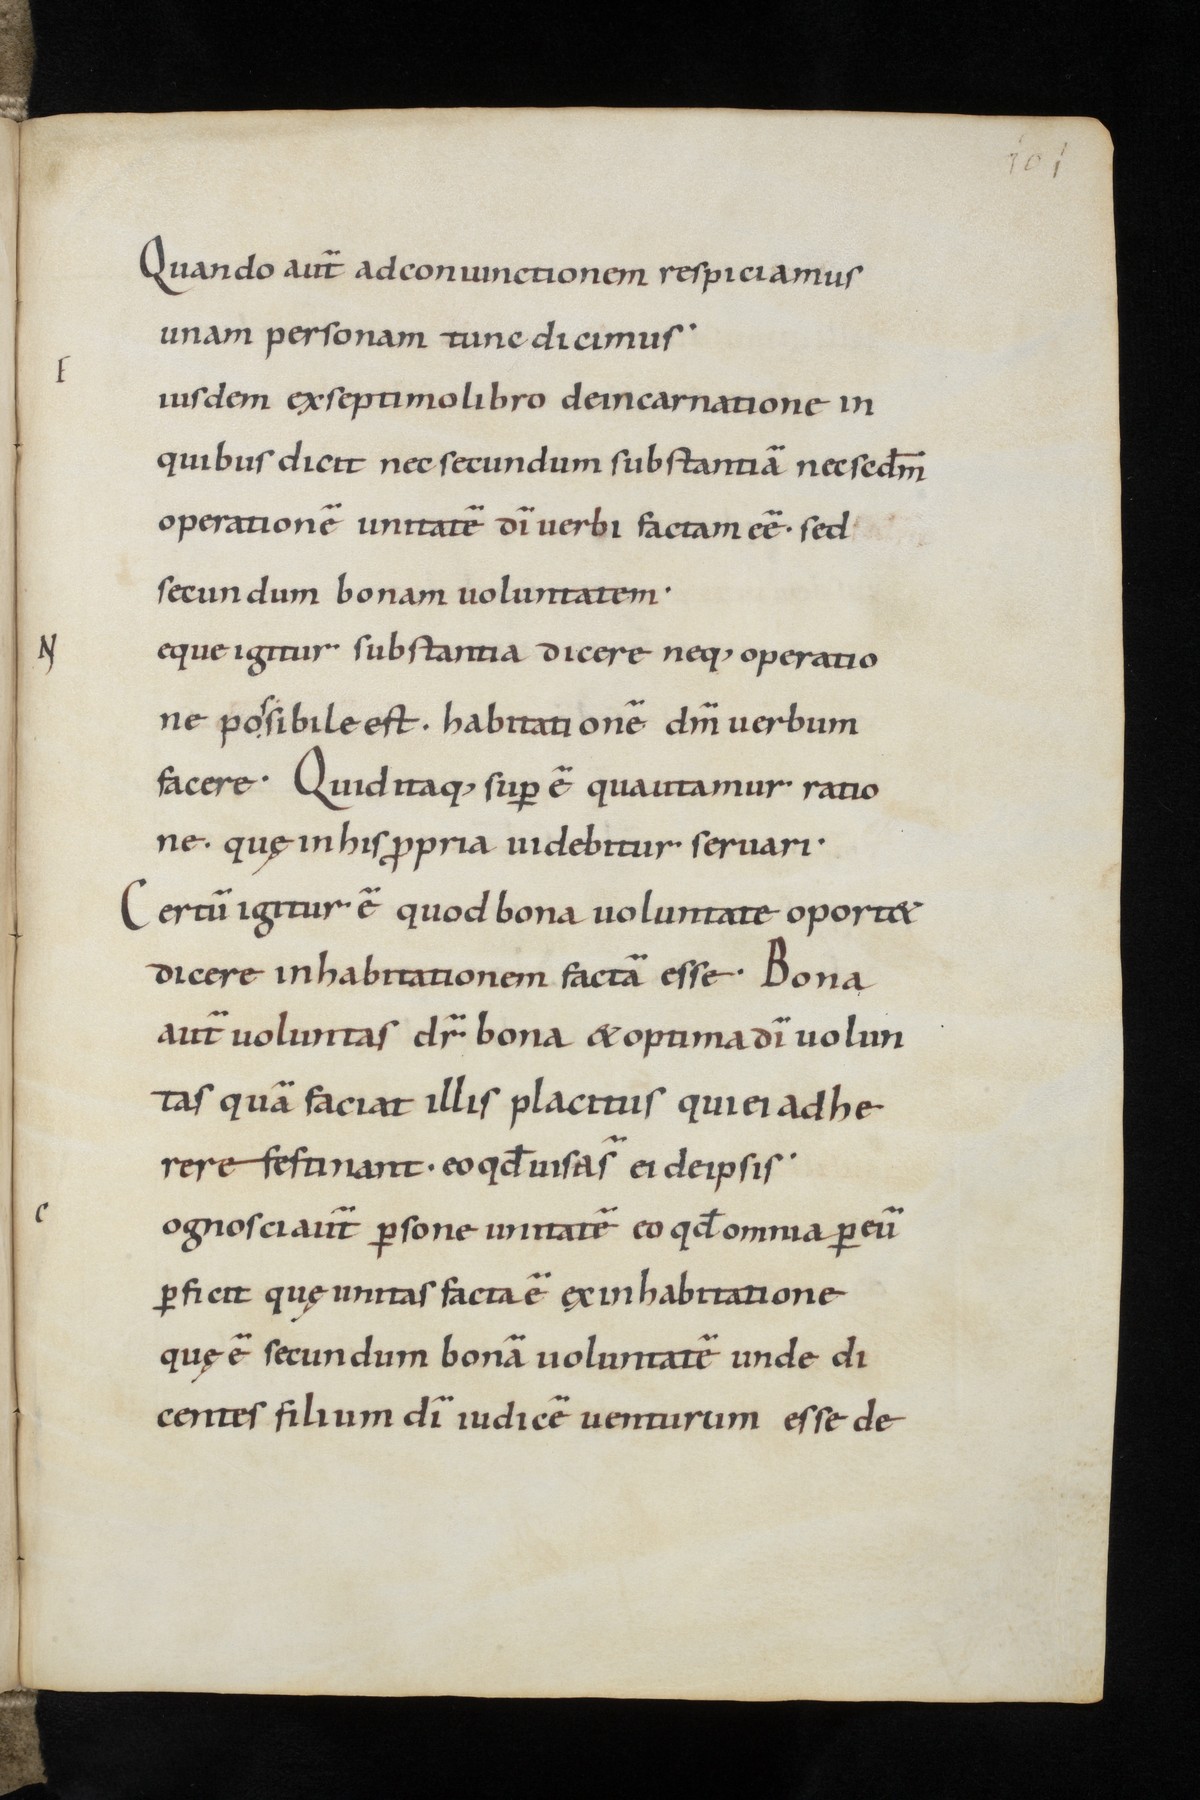 101
Quando aut̃ adconiunctionem respiciamus
unam personam tunc dicimus·
E
iusdem exseptimolibro deincarnatione in
quibus dicit nec secundum substantiã nec scdm̄
operationẽ unitatẽ dĩ uerbi factam eẽ· sed
secundum bonam uoluntatem·
N
eque igitur substantia dicere neq; operatio
ne possibile est· habitationẽ dm̃ uerbum
facere· Quid itaq; suꝑ ẽ qua utamur ratio
ne· quę in his ꝓpria uidebitur seruari·
Certũ igitur ẽ quod bona uoluntate oport&
dicere inhabitationem factã esse· Bona
aut̃ uoluntas dr̃ bona & optima dĩ uolun
tas quã faciat illis placitus qui ei adhe
rere festinant· eo qđ uisas̃ ei de ipsis·
C
ognosci aut̃ ꝑsone unitatẽ eo qđ omnia ꝑ eũ
ꝑficit quę unitas facta ẽ ex inhabitatione
quę ẽ secundum bonã uoluntatẽ unde di
centes filium dĩ iudicẽ uenturum esse de